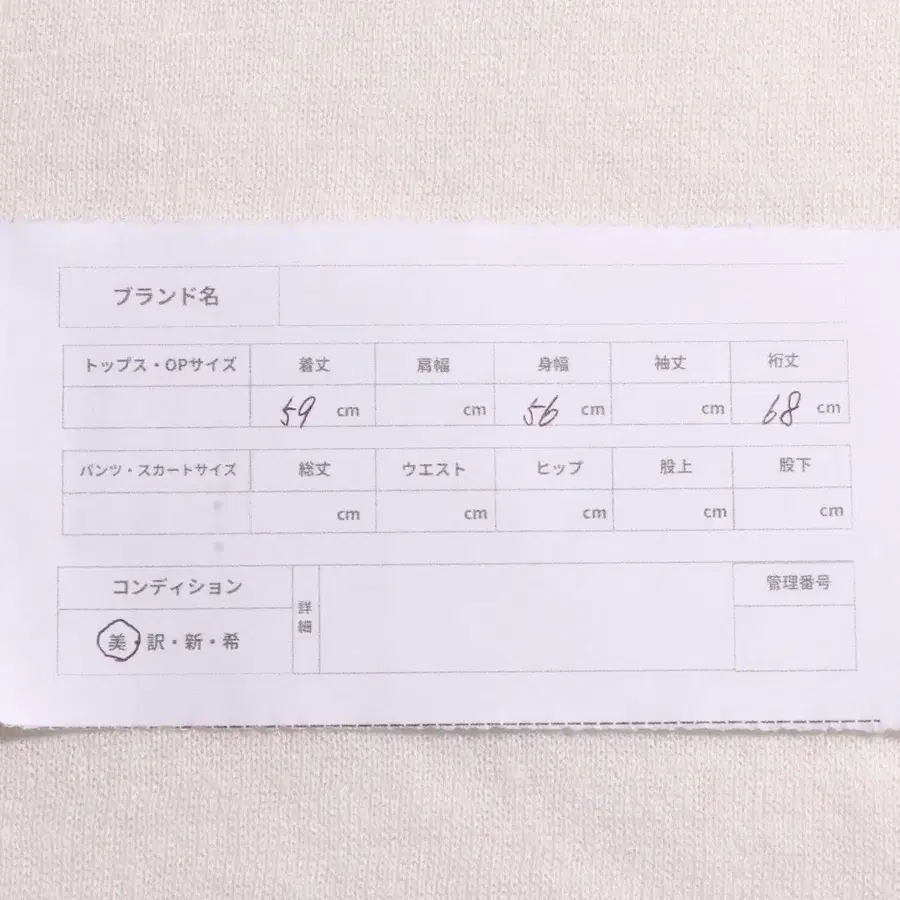 ブランド名
トップス・OPサイズ 着丈 肩幅 身幅 袖丈 裄丈
59 cm cm 56 cm cm 68 cm
パンツ・スカートサイズ 総丈 ウエスト ヒップ 股上 股下
cm cm cm cm cm
コンディション 詳細 管理番号
美・訳・新・希